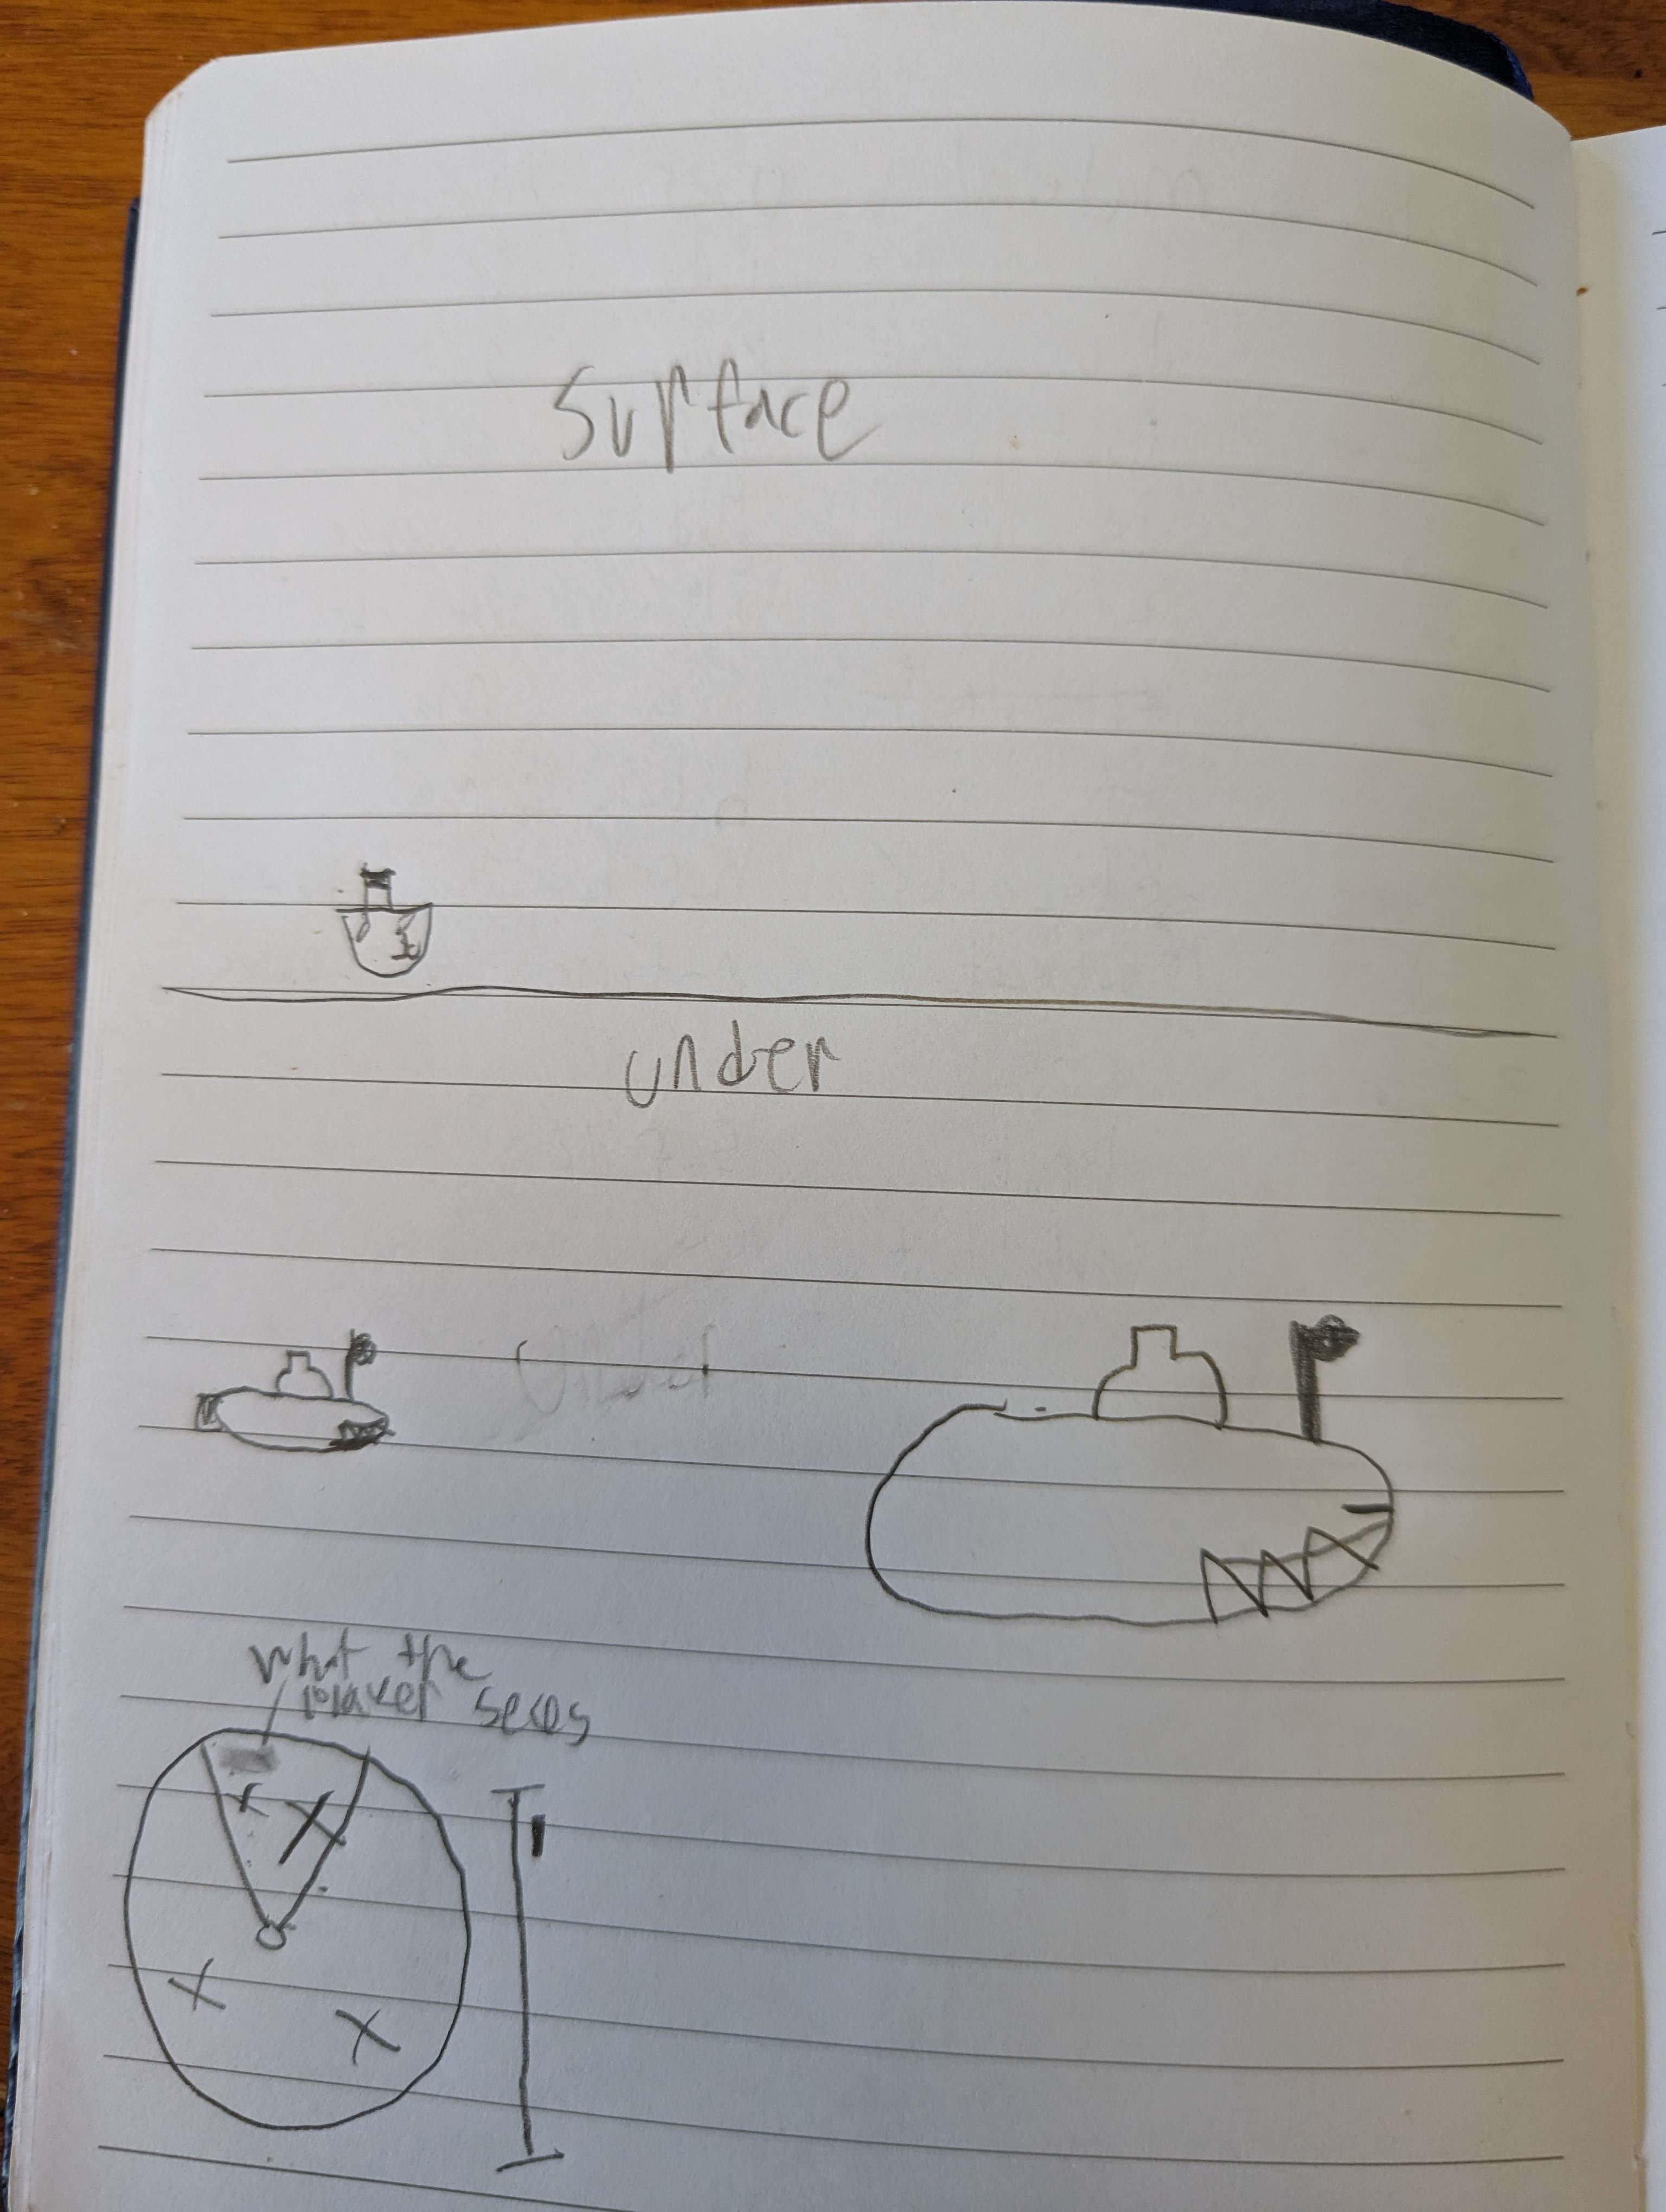 surface
under
what the
player sees